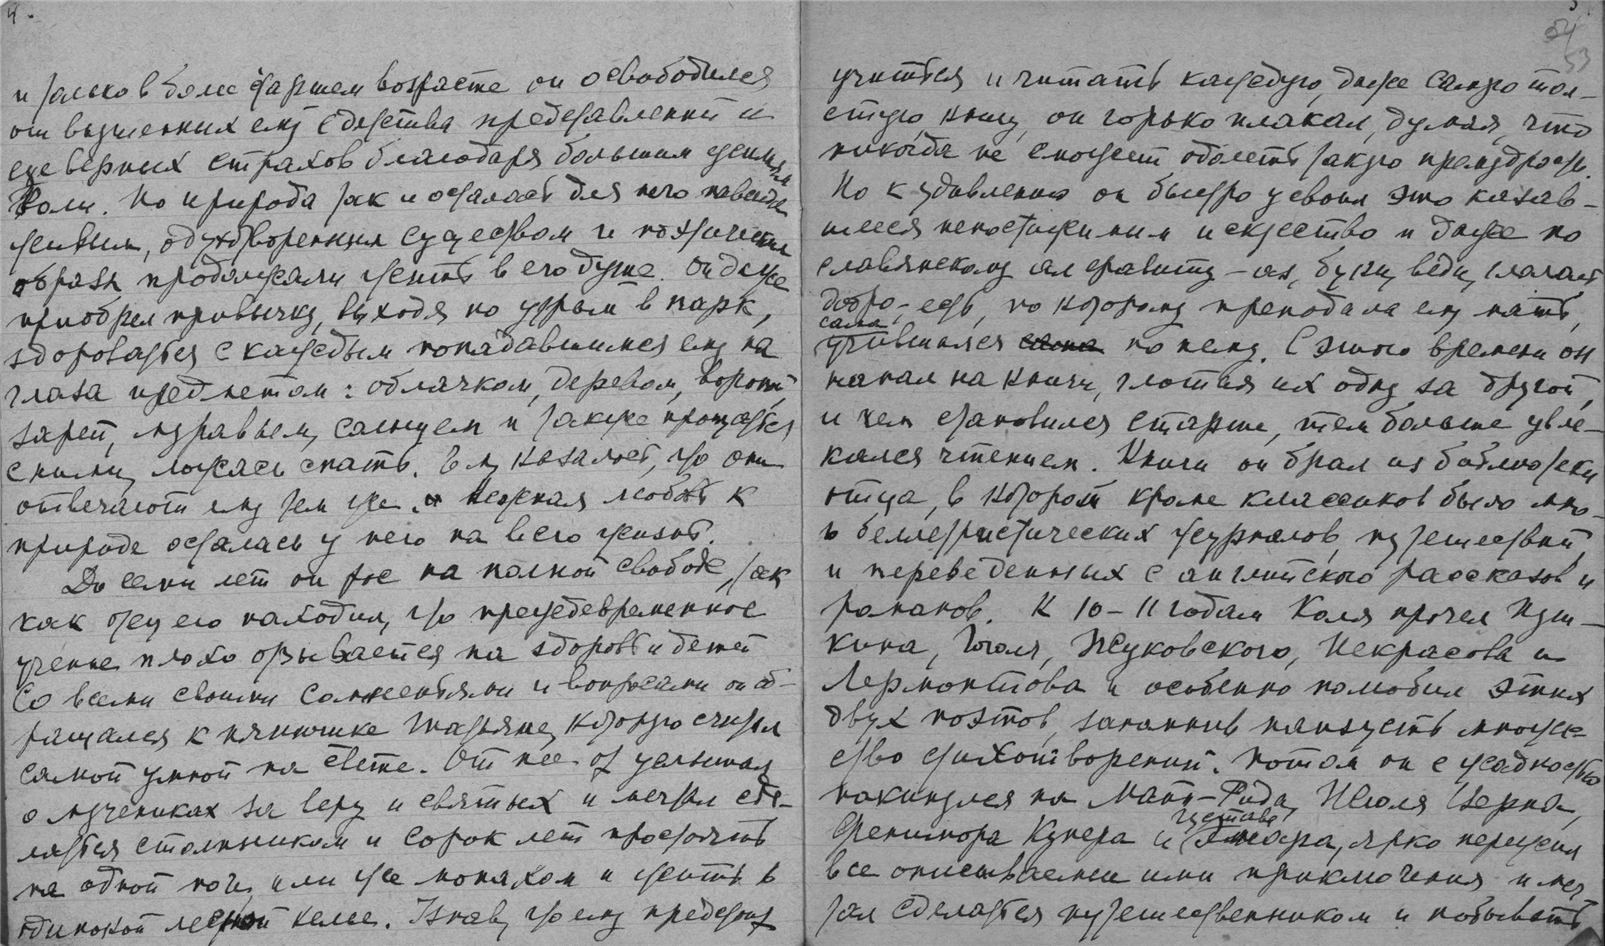 4.
и только в более старшем возрасте он освободился
от внушенных ему с детства представлений и
суеверных страхов благодаря большим усилиям
воли. Но природа так и осталась для него навсегда
живым, одухотворенным существом и поэтические
образы продолжали жить в его душе. Он даже
приобрел привычку, выходя по утрам в парк,
здороваться с каждым попадавшимся ему на
глаза предметом: облачком, деревом, вороной,
зарей, муравьем, солнцем и также прощаться
с ними, ложась спать. Ему казалось, что они
отвечают ему тем же. и нежная любовь к
природе осталась у него на всю жизнь.
До семи лет он рос на полной свободе, так
как отец его находил, что преждевременное
учение плохо отзывается на здоровьи детей
Со всеми своими сомнениями и вопросами он об-
ращался к нянюшке Татьяне, которую считал
самой умной на свете. От нее он услышал
о мучениках за веру и святых и мечтал сде-
латься столпником и сорок лет простоять
на одной ноге, или же монахом и жить в
одинокой лесной келье. Узнав, что ему предстоит
5.
54
53
учиться и читать каждую, даже самую тол-
стую книгу, он горько плакал, думая, что
никогда не сможет одолеть такую премудрость.
Но к удивлению он быстро усвоил это казав-
шееся непостижимым искусство и даже по
славянскому алфавиту – аз, буки, веди, глаголь,
добро, – есть, по которому преподала ему мать,
сама
учившаяся сама по нему. С этого времени он
напал на книги, глотая их одну за другой,
и чем становился старше, тем больше увле-
кался чтением. Книги он брал из библиотеки
отца, в которой кроме классиков было мно-
го беллетристических журналов, путешествий
и переведенных с английского рассказов и
романов. К 10–11 годам Коля прочел Пуш-
кина, Гоголя, Жуковского, Некрасова и
Лермонтова и особенно полюбил этих
двух поэтов, запомнив наизусть множе-
ство стихотворений. Потом он с жадностью
накинулся на Майн-Рида, Жюля Верна,
Густава
Фенимора Купера и Эмара, ярко пережил
все описываемые ими приключения и меч
тал сделаться путешественником и побывать